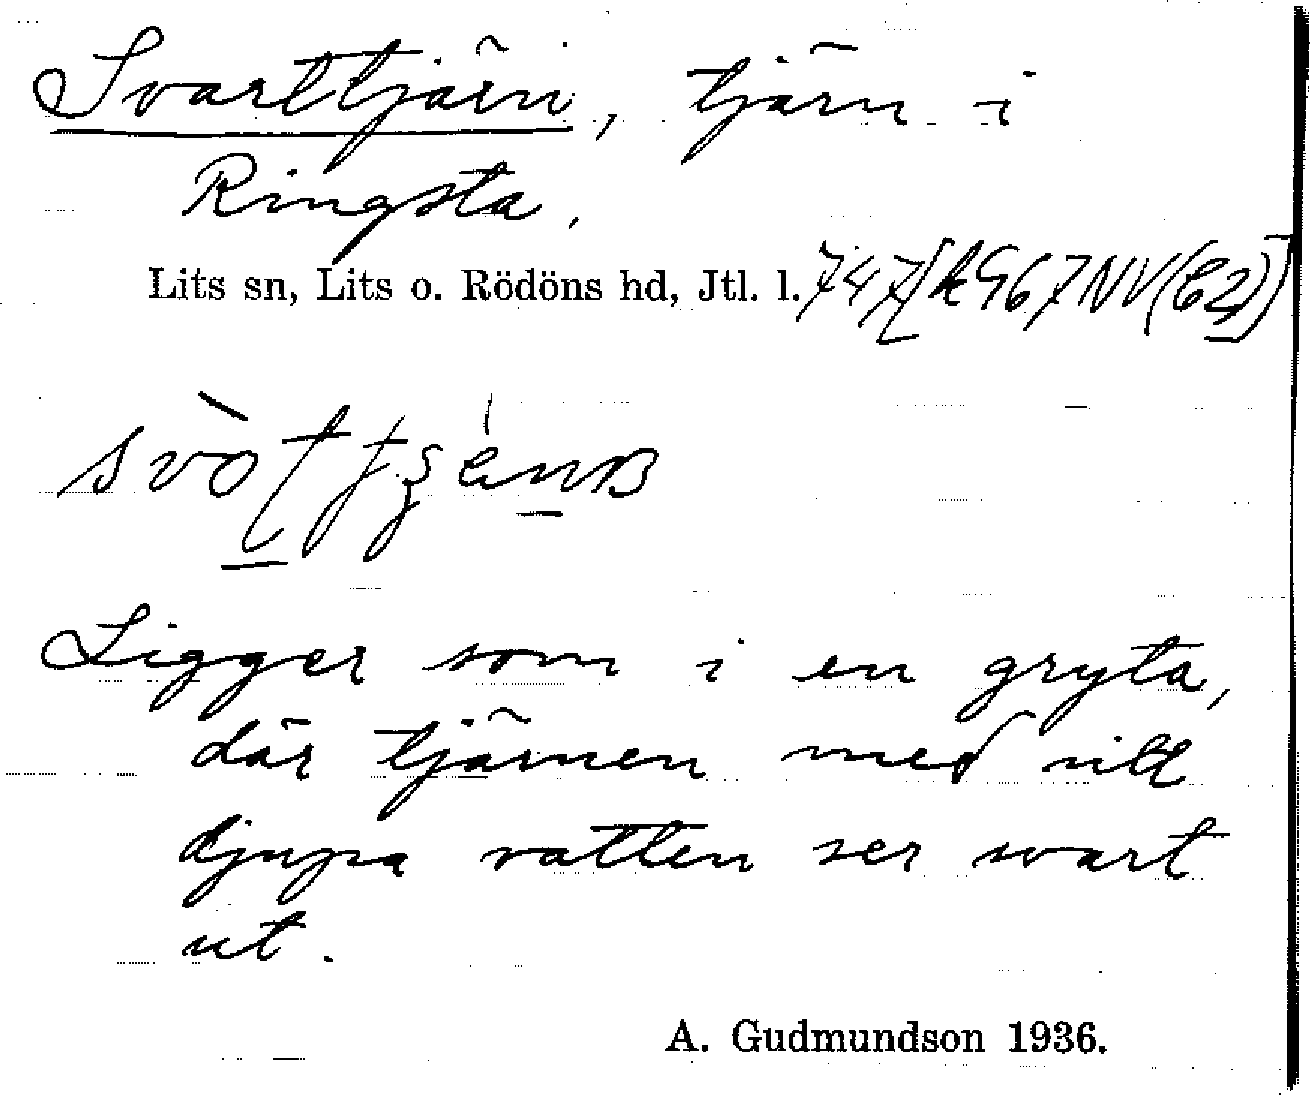 Svarttjärn, tjärn i
Ringsta.
Lits sn, Lits o. Rödöns hd, Jtl. l. 747
Ligger som i en gryta,
där tjärnen med sitt
djupa vatten ser svart
ut.
A. Gudmundson 1936.